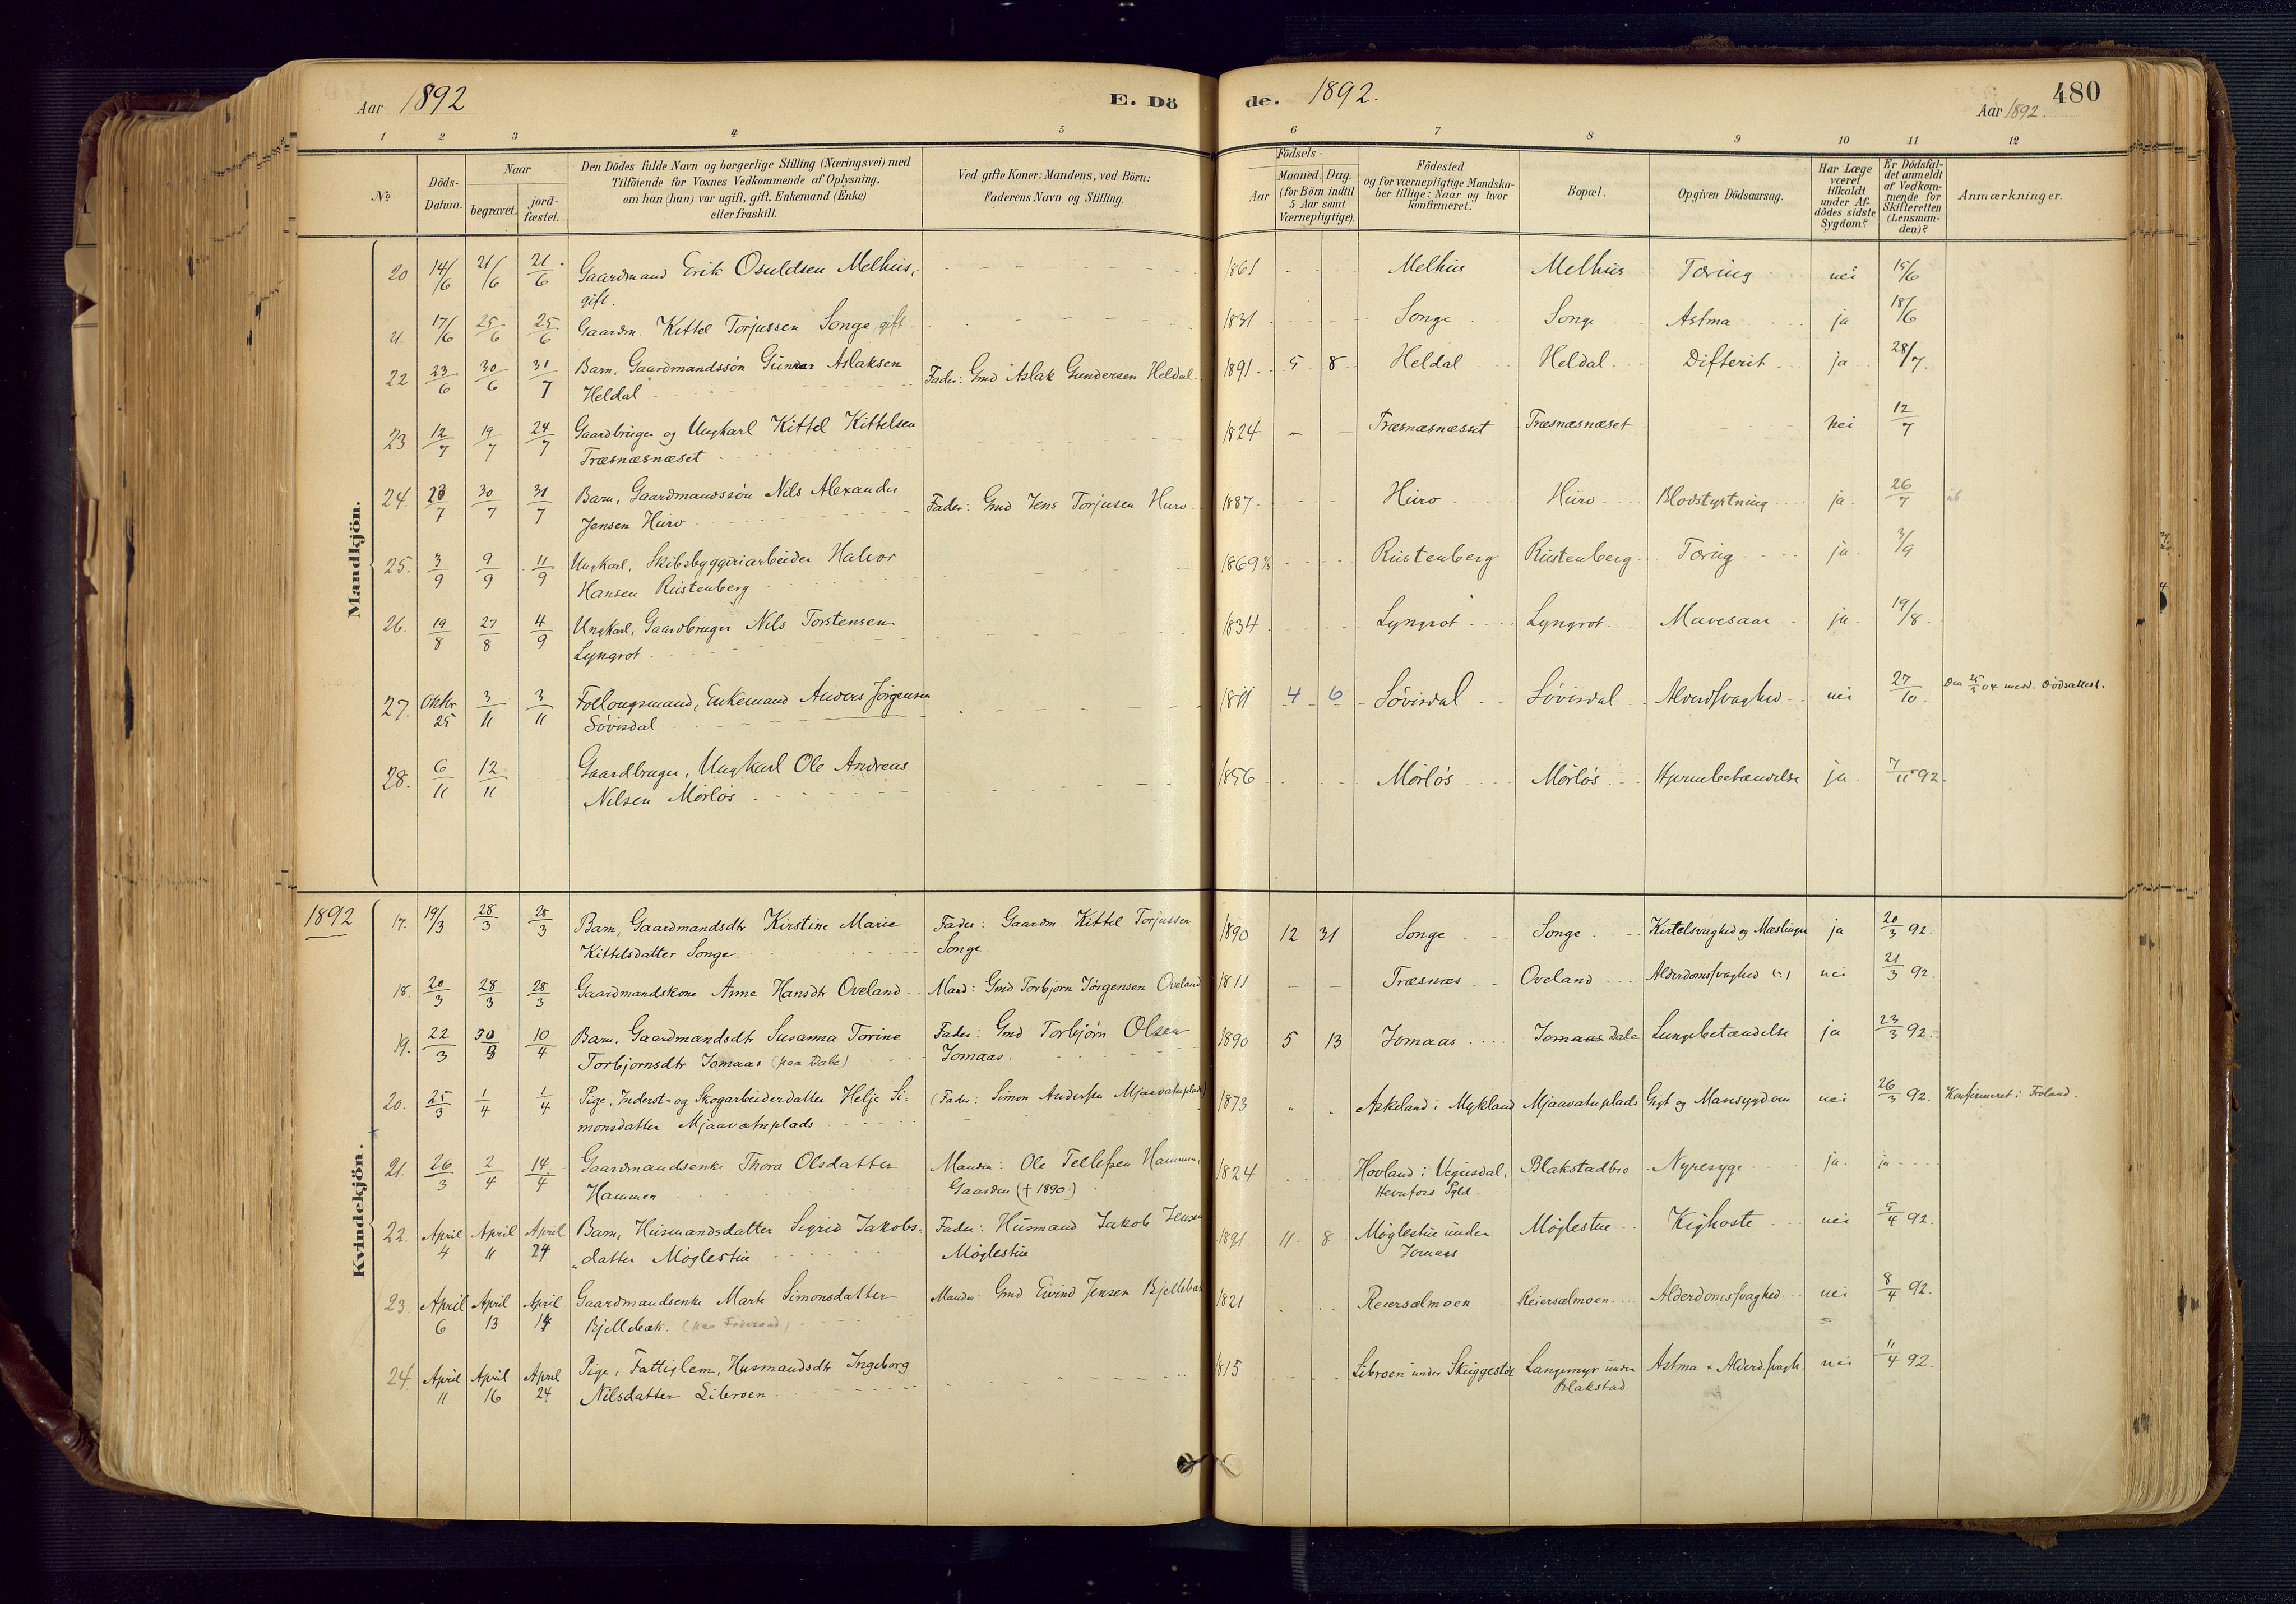 Aar 1892
E. Dö
de.
1892.
Aar 1892.
480
1 2 3 4 5 6 7 8 9 10 11 12
№
Döds-
Datum.
Naar
begravet.
jord-
fæstet.
Den Dödes fulde Navn og borgerlige Stilling (Næringsvei) med
Tilföiende for Voxnes Vedkommende af Oplysning,
om han (hun) var ugift, gift, Enkemand (Enke)
eller fraskilt.
Ved gifte Koner: Mandens, ved Börn:
Faderens Navn og Stilling.
Födsels-
Aar
Maaned. Dag.
(for Börn indtil
5 Aar samt
Værnepligtige).
Födested
og for værnepligtige Mandska-
ber tillige: Naar og hvor
konfirmeret.
Bopæl.
Opgiven Dödsaarsag.
Har Læge
været
tilkaldt
under Af-
dödes sidste
Sygdom?
Er Dödsfal-
det anmeldt
af Vedkom-
mende for
Skifteretten
(Lensman-
den)?
Anmærkninger.
Mandkjön.
20 14/6 21/6 21/6 Gaardmand Erik Osuldsen Melhus, 1861 Melhus Melhus Tæring nei 15/6
gift.
21. 17/6 25/6 25/6 Gaardm. Kittel Torjussen Songe, gift 1831 Songe Songe Astma ja 18/6
22 23/6 30/6 31/7 Barn, Gaardmandssøn Gunnar Aslaksen Fader: Gmd Aslak Gundersen Heldal 1891 5 8 Heldal Heldal Difterit ja 28/7.
Heldal
23 12/7 19/7 24/7 Gaardbruger og Ungkarl Kittel Kittelsen 1824 Træsnæsnæsset Træsnæsnæset nei 12/7
Træsnæsnæset
24. 23/7 30/7 31/7 Barn, Gaardmandssøn Nils Alexander Fader: Gmd Jens Torjusen Huro 1887 Huro Huro Blodstyrtning ja 26/7
Jensen Huro
25. 3/9 9/9 11/9 Ungkarl, Skibsbyggeriarbeider Halvor 1869 Rustenberg Rustenberg Tæring ja 3/9
Hansen Rustenberg
26. 19/8 27/8 4/9 Ungkarl, Gaardbruger Nils Torstensen 1834 Lyngrot Lyngrot Mavesaar ja 19/8.
Lyngrot
27. Oktbr 25 3/11 3/11 Follougsmand, Enkemand Anders Jørgensen 1811 4 6 Søvisdal Søvisdal nei 27/10. Den 25/5 04 medd. Dødsattest.
Søvisdal
28. 6/11 12/11 Gaardbruger, Ungkarl Ole Andreas 1856 Mørløs Mørløs Hjernebetændelse ja 7/11 92.
Nilsen Mørløs
Kvindekjön.
1892
17. 19/3 28/3 28/3 Barn, Gaardmandsdtr Kirstine Marie Fader: Gaardm. Kittel Torjussen 1890 12 31 Songe Songe Kirtelsvaghed og Mæslinger ja 20/3 92.
Kittelsdatter Songe Songe.
18. 20/3 28/3 28/3 Gaardmandskone Anne Hansdtr Oveland Mand: Gmd Torbjørn Jørgensen Oveland 1811 Træsnæs Oveland Alderdomssvaghed (?) nei 21/3 92.
19. 22/3 30/3 10/4 Barn, Gaardmandsdtr Susanna Torine Fader: Gmd Torbjørn Olsen 1890 5 13 Jomaas Jomaas Dale Lungebetændelse ja 23/3 92.
Torbjørnsdtr Jomaas (paa Dale) Jomaas.
20. 25/3 1/4 1/4 Pige, Inderst- og Skogarbeiderdatter Helje Si- (Fader: Simon Anderssen Mjaavatnplads) 1873 Askeland i Mykland Mjaavatnplads Gigt og Mavesygdom nei 26/3 92. Konfirmeret i Froland.
monsdatter Mjaavatnplads
21. 26/3 2/4 14/4 Gaardmandsenke Thora Olsdatter Manden: Ole Tellefsen Hammen, 1824 Hovland i Vegusdal, Blakstadbro Nyresyge ja ja
Hammen Gaarden († 1890.) Herefors Pgld.
22. April 4 April 11 April 24 Barn, Husmandsdatter Sigrid Jakobs- Fader: Husmand Jakob Jensen 1891 11 8 Møglestue under Møglestue Kighoste nei 5/4 92.
datter Møglestue Møglestue Jomaas
23. April 6 April 13 April 14 Gaardmandsenke Marte Simonsdatter Manden: Gmd Eivind Jensen Bjellebæk 1821 Reiersølmoen Reiersølmoen Alderdomssvaghed nei 8/4 92.
Bjellebæk.
24. April 11 April 16 April 24 Pige, Fattiglem, Husmandsdtr Ingeborg 1815 Libroen under Skuggestøl Langemyr under Astma & Alderd.svagh. nei 11/4 92.
Nilsdatter Libroen Blakstad